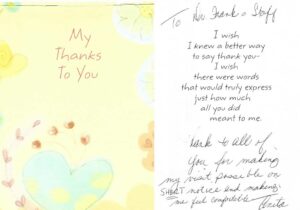 My
Thanks
To You
To Dr Frank & Staff
I wish
I knew a better way
to say thank you-
I wish
there were words
that would truly express
just how much
all you did
meant to me.
to all of
you for making
my visit possible on
SHORT notice and making
me feel comfortable
Anita